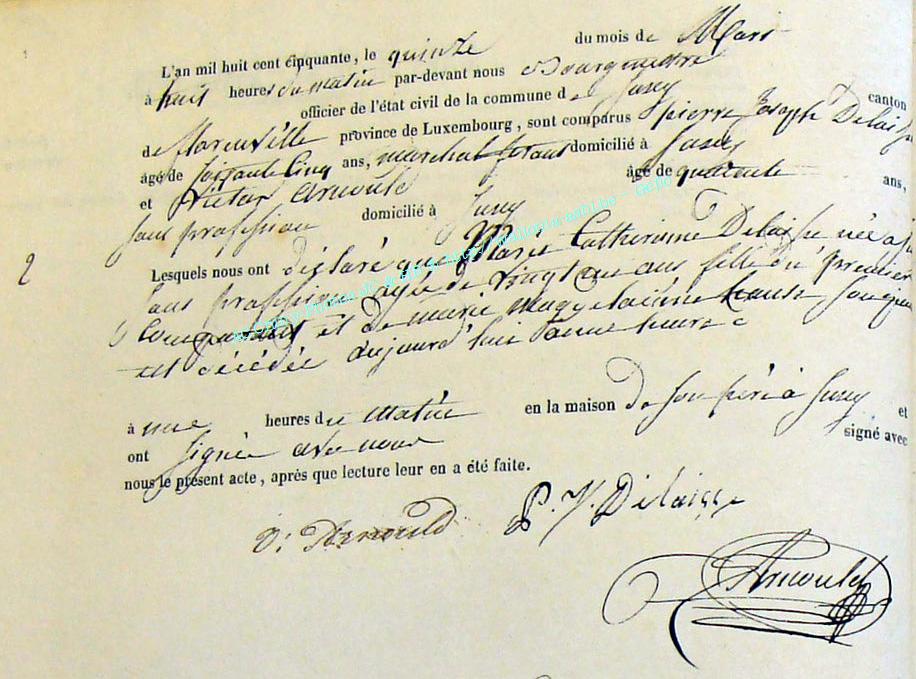 L'an mil huit cent cinquante, le quinze du mois de Mars
à huit heures du matin par-devant nous Bourgmestre
officier de l'état civil de la commune de Jusey canton
de province de Luxembourg, sont comparus pierre Joseph Delaisse
âgé de soixante cinq ans, marchal ferant domicilié à Jusey
et Victor Arnould âgé de quarente ans,
sans profession domicilié à Jusey
2
Lesquels nous ont déclaré que Marie Catherinne Delaisse née a
sans profession agée de Vingt ans fille du premier
comparant et de marie magdelainne
est décédée aujourd'hui
à une heures du matin en la maison de son père à Jusey et
ont signée avec nous signé avec
nous le présent acte, après que lecture leur en a été faite.
V. Arnould P. J. Delaisse
Arnould